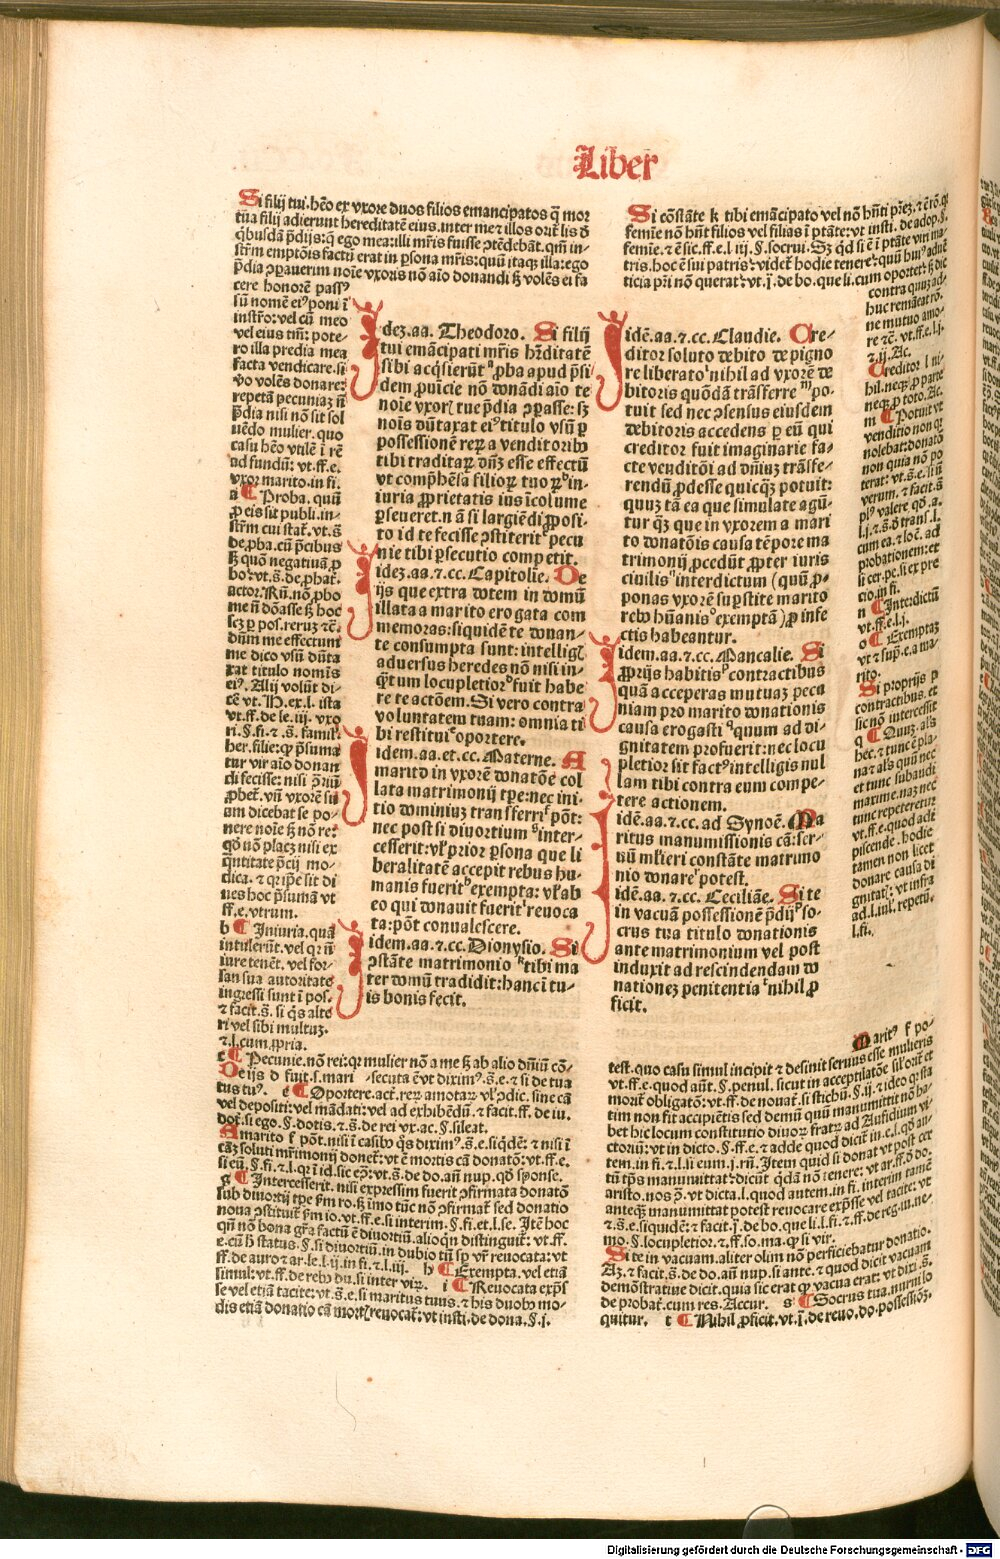 Liber
Si filij tui. hēo ex vxore duos filios emancipatos q̄ mor
tua filij adierunt hereditatē eius. inter me ⁊ illos orit̄ lis d̄
q̄busdā p̄dijs: q̄ ego mea: illi mr̄is fuisse ↄtēdebāt. qm̄ in
str̄m emptōis factū erat in p̄sona mr̄is: quū itaq; illa: ego
p̄dia ↄparauerim noīe vxoris nō aīo donandi ꝫ volēs ei fa
cere honorē passꝰ
sū nomē eiꝰ poni ī
instr̄o: vel cū meo
vel eius tm̄: pote-
ro illa predia mea
facta vendicare. si
v̄o volēs donare:
repetā pecuniaꝫ in
p̄dia nisi nō sit sol
uēdo mulier. quo
casu hēo vtilē ī rē
ad fundū: vt .ff. e.
vxor marito. in fi.
a Proba. quū
p̄ eis sit publi. in-
str̄m cui stat̄. vt. s̄
de. ꝓba. cū p̄cibus
ꝫ quō negatiuā p̄
bo: vt. s̄. de. ꝓbat̄.
actor. Rn̄. nō ꝓbo
me n̄ dōasse ꝫ hoc
dn̄m me effectum
me dico vsū dūta
xat titulo nomīs
eiꝰ. Alij volūt di-
cē vt. H. ex. l. ista
vt .ff. de le. iij. vxo
ri. §. fi. ⁊ .s̄. famil̄.
her. filie: qꝫ p̄suma
tur vir aīo donan
di fecisse: nisi ↄ̄riū
ꝓbet̄. vn̄ vxorē su
am dicebat se po-
nere noīe ꝫ nō re:
qd̄ nō placꝫ nisi ex
q̄ntitate p̄cij mo-
dica. ⁊ qr ip̄e sit di
ues hoc p̄sumā vt
ff. e. vtrum.
b Iniuria. quā
intulerūt. vel qr n̄
iure tenēt. vel for-
san sua autoritate
ingressi sunt ī pos.
⁊ facit. s̄. si q̄s alte
ri vel sibi multuꝫ.
⁊. l. cum ꝓpria.
c Pecunie. nō rei: qr mulier nō a me ꝫ ab alio dn̄iū cō-
De ijs d fuit. s. mari secuta ē vt diximꝰ. s̄. e. ⁊ si de tua
tus tuꝰ. e Oportere. act̄. reꝝ amotaꝝ vl̓ ↄdic. sine cā
vel depositi: vel mādati: vel ad exhibēdū. ⁊ facit .ff. de iu.
dot̄. si ego. §. dotis. ⁊ .s̄. de rei vx. ac. §. sileat.
A marito f pōt. nisi ī casibꝰ q̄s diximꝰ. s̄. e. siq̄dē: ⁊ nisi ī
cāꝫ soluti mr̄imonij donet̄: vt ē mortis cā donatō: vt .ff. e.
si eū. §. fi. ⁊. l. qr ī id. sic eꝯ: vt .s̄. de do. an̄ nup. qd̄ sponse.
g Intercesserit. nisi expressim fuerit ↄfirmata donatō
sub diuortij tp̄e p̄m ro. ꝫ īmo tūc nō ↄfirmat̄ sed donatio
noua ↄstituit̄ p̄m io. vt .ff. e. si interim. §. fi. et. l. se. Itē hoc
qn̄ nō bona gr̄a factū ē diuortiū. alioqn distinguit̄: vt .ff.
e. cū h̄ status. §. si diuortiū. in dubio tn̄ sp̄ vr̄ reuocata: vt
ff. de auro ⁊ ar. le. l. ij. in fi. ⁊. l. iij. h Exempta. vel etiā
simul: vt .ff. de rebꝰ du. si inter viꝝ. i Reuocata exp̄s
se vel etiā tacite: vt .s̄. e. si maritus tuus. ⁊ his duobꝰ mo-
dis etiā donatio cā mort̄ reuocat̄: vt insti. de dona. §. j.
Idez. aa. Theodoro. Si filij
tui emācipati mr̄is hr̄ditatē
sibi acq̄sierūt ꝓba apud p̄si
dem ꝓuīcie nō donādi aīo te
noīe vxor̄ tue p̄dia ↄpasse: sꝫ
nois dūtaxat eiꝰ titulo vsū p
possessionē reꝝ a venditoribꝰ
tibi traditaꝝ dn̄ꝫ esse effectū
vt comp̄hēsa filioꝝ tuoꝝ in-
iuria ꝓprietatis ius īcolume
pseueret. nā si largiēdi ꝓposi-
to id te fecisse ↄstiterit pecu
nie tibi psecutio competit.
Idez. aa. ⁊. cc. Capitolie. De
ijs que extra dotem in domū
illata a marito erogata com
memoras: siquidē te donan-
te consumpta sunt: intelligl̓
aduersus heredes nō nisi in-
q̄tum locupletior fuit habe
re te actōem. Si vero contra
voluntatem tuam: omnia ti
bi restitui oportere.
Idem. aa. et. cc. Materne. A
marito in vxorē donatōe col
lata matrimonij tp̄e: nec ini-
tio dominiuꝫ transferri pōt:
nec post si diuortium inter-
cesserit: vl̓ prior psona que li
beralitatē accepit rebus hu-
manis fuerit exempta: vl̓ ab
eo qui donauit fuerit reuoca
ta: pōt conualescere.
Idem. aa. ⁊. cc. Dionysio. Si
ↄstāte matrimonio tibi ma
ter domū tradidit: hancī tu-
is bonis fecit.
Si cōstāte k tibi emācipato vel nō hn̄ti p̄reꝫ. ⁊ ē rō. qꝫ
femīe nō hn̄t filios vel filias ī p̄tāte: vt insti. de adop. §.
femīe. ⁊ ē sic .ff. e. l. iij. §. socrui. Sꝫ qd̄ si ē ī p̄tāte viri ma-
tris. hoc ē sui patris: videt̄ hodie tenere: quū huiꝰ aduē
ticia pr̄i nō querat̄: vt. j̄. de bo. que li. cum oportet. ꝫ dic
contra quuꝫ ad-
huc remāeat rō.
ne mutuo amo-
re ⁊c̄. vt .ff. e. l. j.
⁊. ij. Ac.
Creditor l ni-
hil. neqꝫ ꝓ parte
neqꝫ ꝓ toto. Ac.
m Potuit vt
venditio non qr
nolebat: donatō
non quia nō po
terat: vt .s̄. e. si ūl̄
verum. ⁊ facit. s̄
plꝰ valere qd̄. a.
l. j. ⁊ .s̄. d̄ trans. l.
cum ea. ⁊ loc̄. act̄
probationem: et
si cer. pe. si ex pre
cio. in fi.
n Interdictū
vt .ff. e. l. j.
o Exemptaꝫ
vt ⁊ sup̄. e. a ma-
rito.
Si proprijs p
contractibus. et
sic nō intercessit
q Quuꝫ. als
hec. ⁊ tunc ē pla-
na ⁊ als quū nec
et tunc subaudi
maxime. naꝫ nec
tunc repeteretur
vt .ff. e. quod adi
piscende. hodie
tamen non licet
donare causa di
gnitat̄: vt infra
ad. l. iul̓. repetū.
l. fi.
Idē. aa. ⁊. cc. Claudie. Cre-
ditor soluto debito de pigno
re liberato nihil ad vxorē de
bitoris quōdā trāsferre po-
tuit sed nec ↄsensus eiusdem
debitoris accedens p eū qui
creditor fuit imaginarie fa-
cte venditōi ad dn̄iuꝫ trāsfe-
rendū ꝓdesse quicqꝫ potuit:
quuꝫ tā ea que simulate agū-
tur qꝫ que in vxorem a mari
to donatōis causa tēpore ma
trimonij ꝓcedūt ꝓpter iuris
ciuilis interdictum (quū ꝓ-
ponas vxorē supstite marito
rebꝰ hūanis exemptā) ꝓ infe
ctis habeantur.
Idem. aa. ⁊. cc. Mancalie. Si
ꝓprijs habitis contractibus
quā acceperas mutuaꝫ pecu
niam pro marito donationis
causa erogasti quum ad di-
gnitatem profuerit: nec locu
pletior sit factꝰ intelligis nul
lam tibi contra eum compe-
tere actionem.
Idē. aa. ⁊. cc. ad Synoē. Ma
ritus manumissionis cā: ser-
uū ml̓ieri constāte matrimo
nio donare potest.
Idē. aa. ⁊. cc. Ceciliāe. Si te
in vacuā possessionē p̄dij so-
crus tua titulo donationis
ante matrimonium vel post
induxit ad rescindendam do
nationeꝫ penitentia nihil ꝓ
ficit.
Maritꝰ r po-
test. quo casu simul incipit ⁊ desinit seruus esse mulieris
vt .ff. e. quod aūt. §. penul. sicut in acceptilatōe sil̓ orit̄ et
morit̄ obligatō: vt .ff. de nouat̄. si stichū. §. ij. ⁊ ideo qr sta
tim non fit accipiētis sed demū quū manumittit nō ha-
bet hic locum constitutio diuoꝝ fratꝝ ad Aufidium vi-
ctoriū: vt in dicto. §. ff. e. ⁊ adde quod dicit̄ in. c. l. qd̄ an-
tem. in fi. ⁊. l. si eum. j. rn̄. Item quid si donat vt post cer
tū tp̄s manumittat: dicūt q̄dā nō tenere: vt ar .ff. d̄ do.
aristo. nos ↄ̄. vt dicta. l. quod autem. in fi. interim tamē
anteqꝫ manumittat potest reuocare exp̄sse vel tacite: vt
⁊ .s̄. e. siquidē: ⁊ facit. j̄. de bo. que li. l. fi. ⁊ .ff. de reg. iu. ne-
mo. §. locupletior. ⁊ .ff. so. ma. qꝫ si vir.
Si te in vacuam. aliter olim nō perficiebatur donatio.
Aꝫ. ⁊ facit. s̄. de do. an̄ nup. si ante. ⁊ quod dicit vacuam
demōstratiue dicit. quia sic erat qꝫ vacua erat: vt dixi. s̄.
de probat̄. cum res. Accur. s Socrus tua. nurui lo
quitur. t Nihil ꝓficit. vt. j̄. de reuo. do. possessiōꝫ.
Digitalisierung gefördert durch die Deutsche Forschungsgemeinschaft - DFG